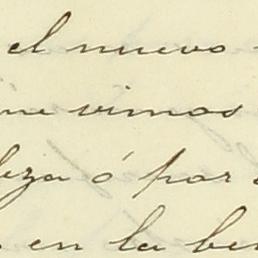 el nuevo
ue vimos
eza ó por
en la be